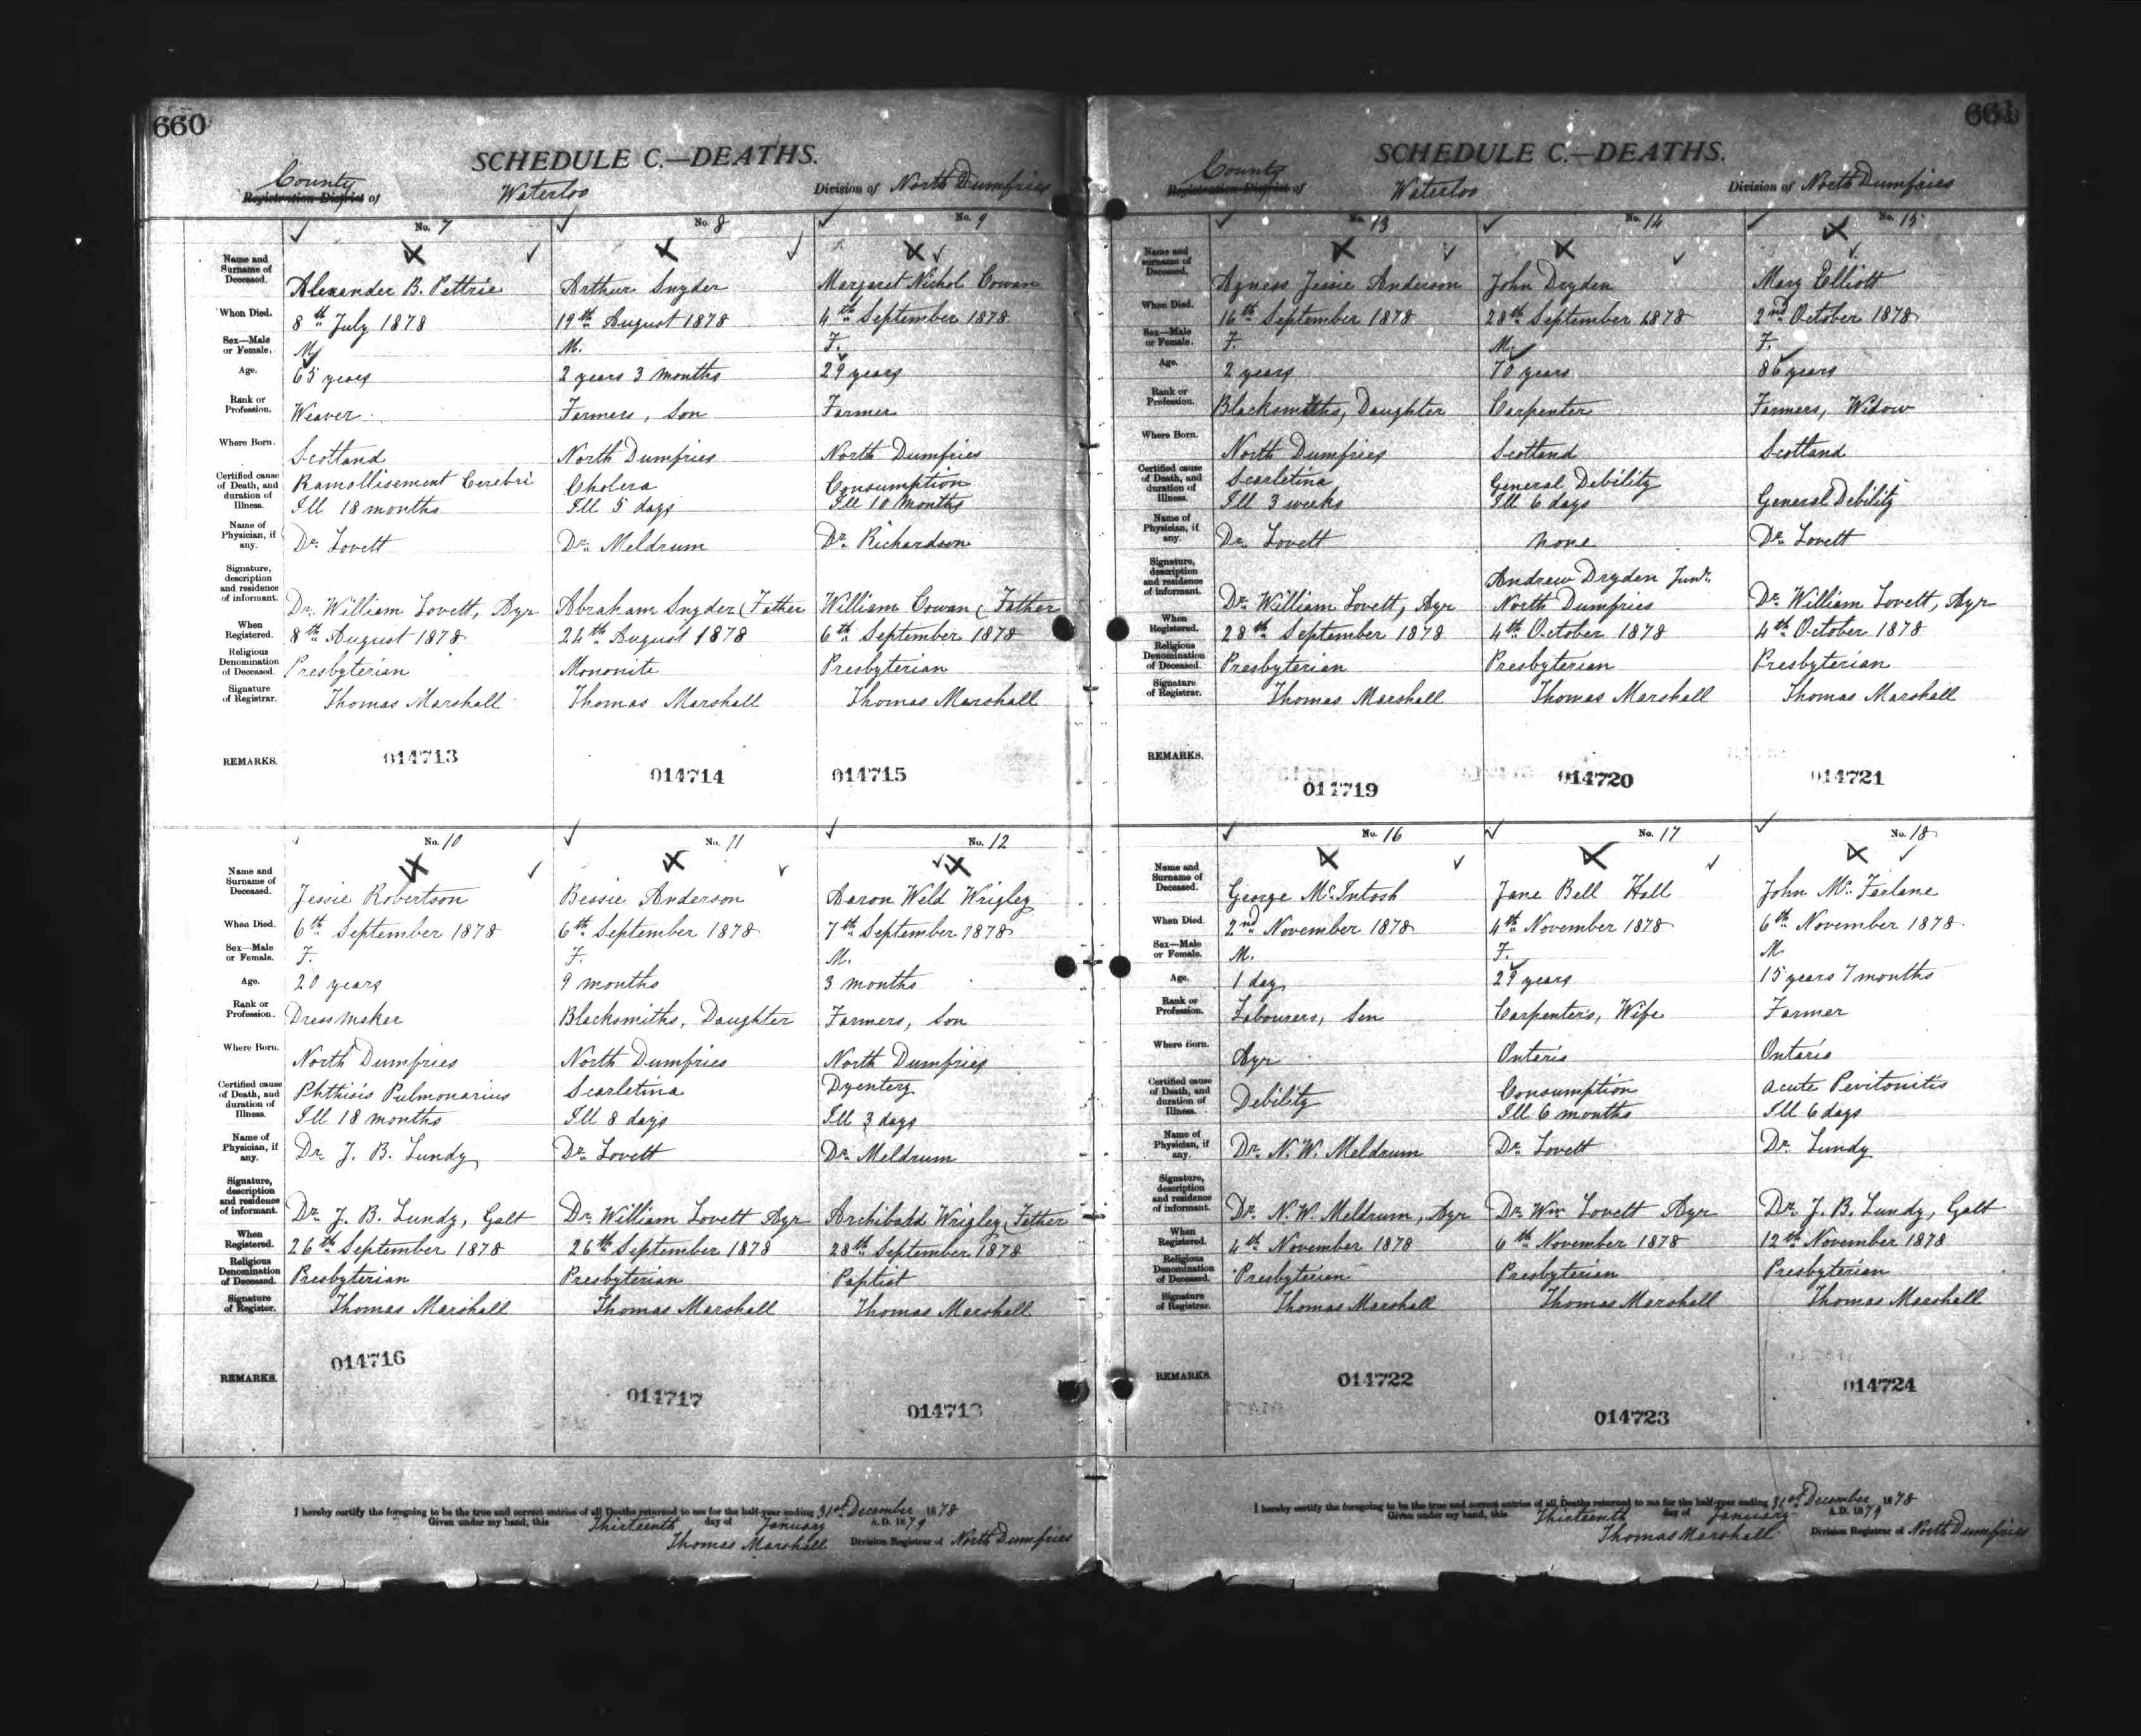 660
SCHEDULE C.—DEATHS.
County
Registration District of Waterloo Division of North Dumfries
No. 7 No. 8 No. 9
Name and Surname of Deceased. Alexander B. Pettrie Arthur Snyder Margaret Nichol Cowan
When Died. 8th July 1878 19th August 1878 4th September 1878
Sex—Male or Female. M. M. F.
Age. 65 years 2 years 3 months 29 years
Rank or Profession. Weaver Farmers, Son Farmer
Where Born. Scotland North Dumfries North Dumfries
Certified cause of Death, and duration of Illness. Ramollisement Cerebri Cholera Consumption
Ill 18 months Ill 5 days Ill 10 Months
Name of Physician, if any. Dr. Lovett Dr. Meldrum Dr. Richardson
Signature, description and residence of informant. Dr. William Lovett, Ayr Abraham Snyder (Father William Cowan (Father
When Registered. 8th August 1878 24th August 1878 6th September 1878
Religious Denomination of Deceased. Presbyterian Mononite Presbyterian
Signature of Registrar. Thomas Marshall Thomas Marshall Thomas Marshall
REMARKS. 014713 014714 014715
No. 10 No. 11 No. 12
Name and Surname of Deceased. Jessie Robertson Bessie Anderson Aaron Weld Wrigley
When Died. 6th September 1878 6th September 1878 7th September 1878
Sex—Male or Female. F. F. M.
Age. 20 years 9 months 3 months
Rank or Profession. Dressmaker Blacksmiths, Daughter Farmers, Son
Where Born. North Dumfries North Dumfries North Dumfries
Certified cause of Death, and duration of Illness. Phthisis Pulmonarius Scarletina Dyentery
Ill 18 months Ill 8 days Ill 3 days
Name of Physician, if any. Dr. J. B. Lundy Dr. Lovett Dr. Meldrum
Signature, description and residence of informant. Dr. J. B. Lundy, Galt Dr. William Lovett Ayr Archibald Wrigley (Father
When Registered. 26th September 1878 26th September 1878 28th September 1878
Religious Denomination of Deceased. Presbyterian Presbyterian Baptist
Signature of Register. Thomas Marshall Thomas Marshall Thomas Marshall
REMARKS. 014716 014717 014718
I hereby certify the foregoing to be the true and correct entries of all Deaths returned to me for the half-year ending 31st December 1878
Given under my hand, this Thirteenth day of January A.D. 1879
Thomas Marshall Division Registrar of North Dumfries
661
SCHEDULE C.—DEATHS.
County
Registration District of Waterloo Division of North Dumfries
No. 13 No. 14 No. 15
Name and surname of Deceased. Agness Jessie Anderson John Dryden Mary Elliott
When Died. 16th September 1878 28th September 1878 2nd October 1878
Sex—Male or Female. F. M. F.
Age. 2 years 70 years 86 years
Rank or Profession. Blacksmiths, Daughter Carpenter Farmers, Widow
Where Born. North Dumfries Scotland Scotland
Certified cause of Death, and duration of Illness. Scarletina General Debility General Debility
Ill 3 weeks Ill 6 days
Name of Physician, if any. Dr. Lovett none Dr. Lovett
Signature, description and residence of informant. Dr. William Lovett, Ayr Andrew Dryden Junr. North Dumfries Dr. William Lovett, Ayr
When Registered. 28th September 1878 4th October 1878 4th October 1878
Religious Denomination of Deceased. Presbyterian Presbyterian Presbyterian
Signature of Registrar. Thomas Marshall Thomas Marshall Thomas Marshall
REMARKS. 014719 014720 014721
No. 16 No. 17 No. 18
Name and Surname of Deceased. George McIntosh Jane Bell Hall John Mc Farlane
When Died. 2nd November 1878 4th November 1878 6th November 1878
Sex—Male or Female. M. F. M
Age. 1 day 29 years 15 years 7 months
Rank or Profession. Labourers, Son Carpenters, Wife Farmer
Where Born. Ayr Ontario Ontario
Certified cause of Death, and duration of Illness. Debility Consumption acute Peritonitis
Ill 6 months Ill 6 days
Name of Physician, if any. Dr. N. W. Meldrum Dr. Lovett Dr. Lundy
Signature, description and residence of informant. Dr. N. W. Meldrum, Ayr Dr. Wm Lovett Ayr Dr. J. B. Lundy, Galt
When Registered. 4th November 1878 6th November 1878 12th November 1878
Religious Denomination of Deceased. Presbyterian Presbyterian Presbyterian
Signature of Registrar. Thomas Marshall Thomas Marshall Thomas Marshall
REMARKS 014722 014723 014724
I hereby certify the foregoing to be the true and correct entries of all Deaths returned to me for the half-year ending 31st December 1878
Given under my hand, this Thirteenth day of January A.D. 1879
Thomas Marshall Division Registrar of North Dumfries